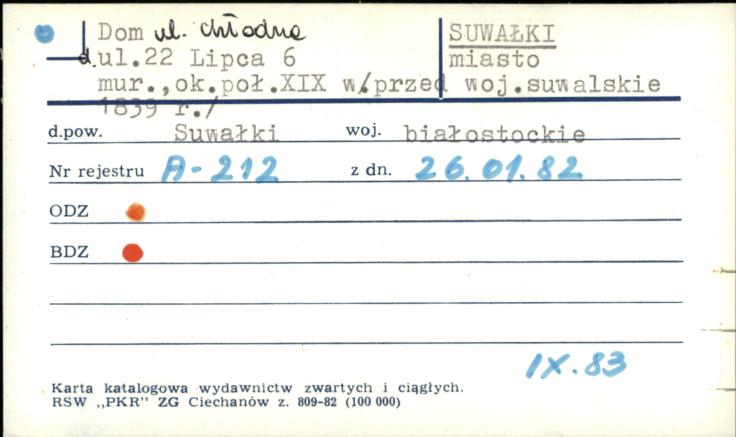 Dom ul. Chłodna SUWAŁKI
d.ul.22 Lipca 6 miasto
mur.,ok.poł.XIX w/przed woj.suwalskie
1839 r./
d.pow. Suwałki woj. białostockie
Nr rejestru A-212 z dn. 26.01.82
ODZ
BDZ
IX.83
Karta katalogowa wydawnictw zwartych i ciągłych.
RSW „PKR” ZG Ciechanów z. 809-82 (100 000)